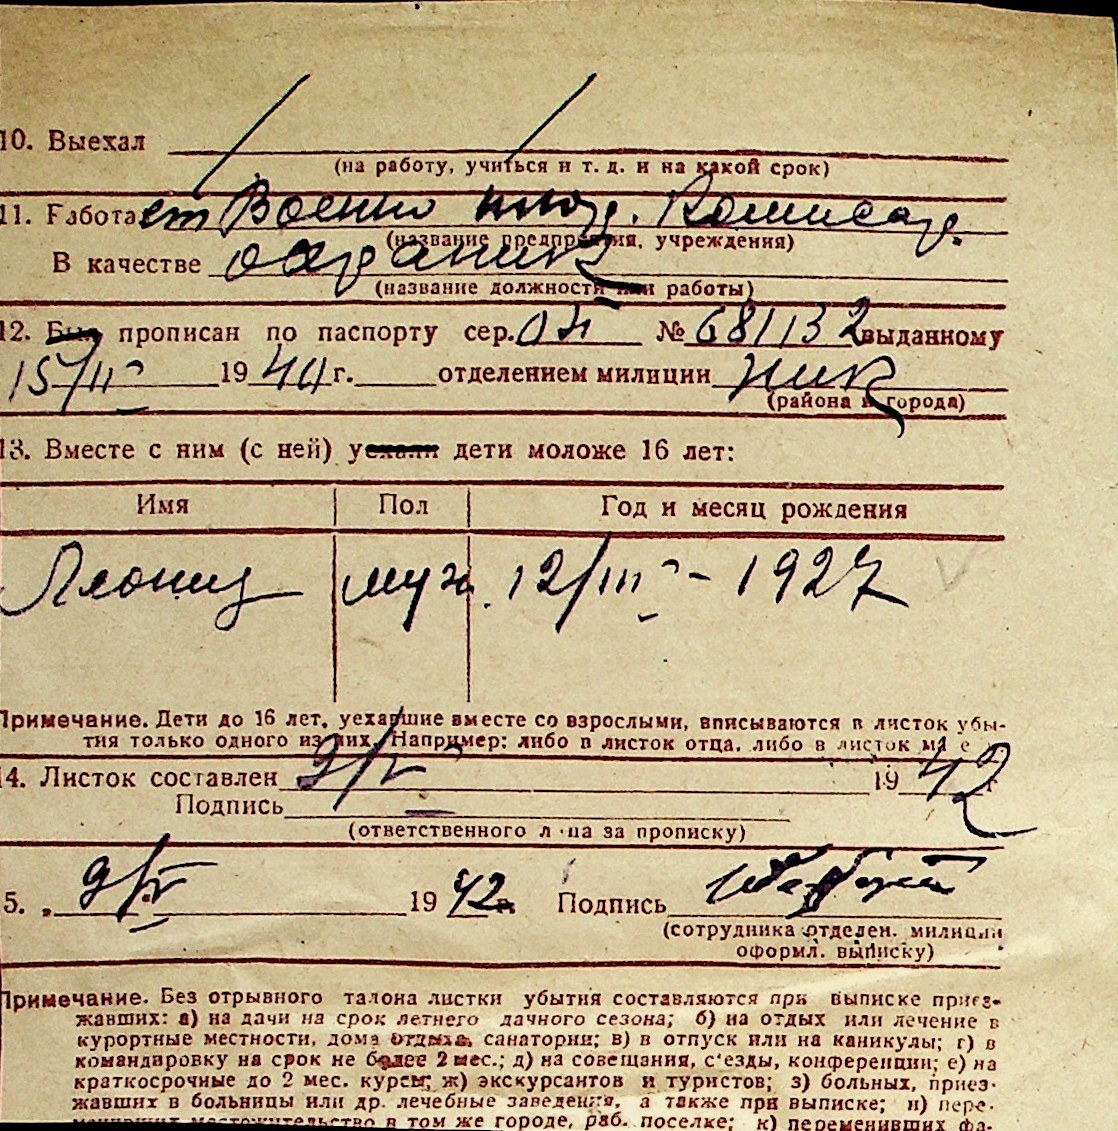 10. Выехал
(на работу, учиться и т. д. и на какой срок)
11. Работает Военно Комисар.
(название предприятия, учреждения)
В качестве охраник
(название должности или работы)
12. Был прописан по паспорту сер. № 681132 выданному
15/II 1941 г. отделением милиции Ник
(района и города)
13. Вместе с ним (с ней) уехали дети моложе 16 лет:
Имя Пол Год и месяц рождения
Леонид муж. 12/III - 1927
Примечание. Дети до 16 лет, уехавшие вместе со взрослыми, вписываются в листок убы-
тия только одного из них. Например: либо в листок отца, либо в листок
14. Листок составлен 9/V 1942
Подпись
(ответственного лица за прописку)
5. 9/V 1942 г. Подпись
(сотрудника отделен. милиции
оформл. выписку)
Примечание. Без отрывного талона листки убытия составляются при выписке приез-
жавших: а) на дачи на срок летнего дачного сезона; б) на отдых или лечение в
курортные местности, дома отдыха, санатории; в) в отпуск или на каникулы; г) в
командировку на срок не более 2 мес.; д) на совещания, с'езды, конференции; е) на
краткосрочные до 2 мес. курсы; ж) экскурсантов и туристов; з) больных, приез-
жавших в больницы или др. лечебные заведения, а также при выписке; и) пере-
менивших местожительство в том же городе, раб. поселке; к) переменивших фа-